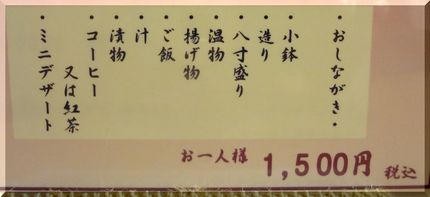 ・おしながき・
・小鉢
・造り
・八寸盛り
・温物
・揚げ物
・ご飯
・汁
・漬物
・コーヒー
又は紅茶
・ミニデザート
お一人様 1,500円 税込